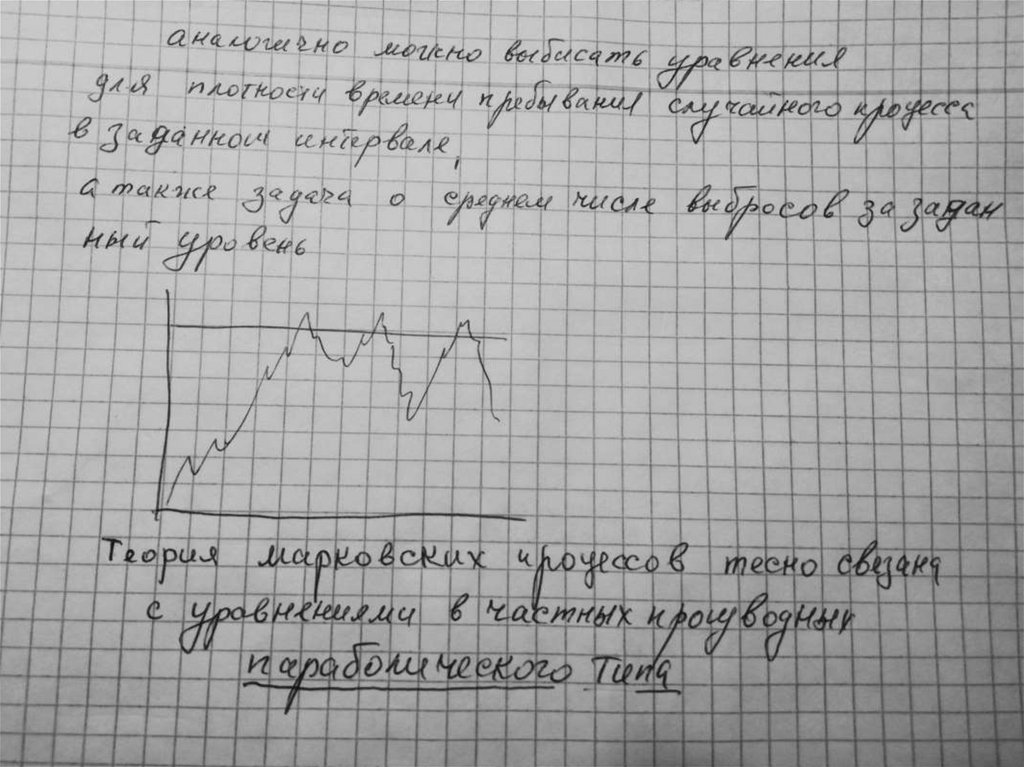 аналогично можно выбисать уравнения
для плотности времени пребывания случайного процесса
в заданном интервале,
а также задача о среднем числе выбросов за задан
ный уровень
Теория марковских процессов тесно свезана
с уравнениями в частных производных
параболического типа